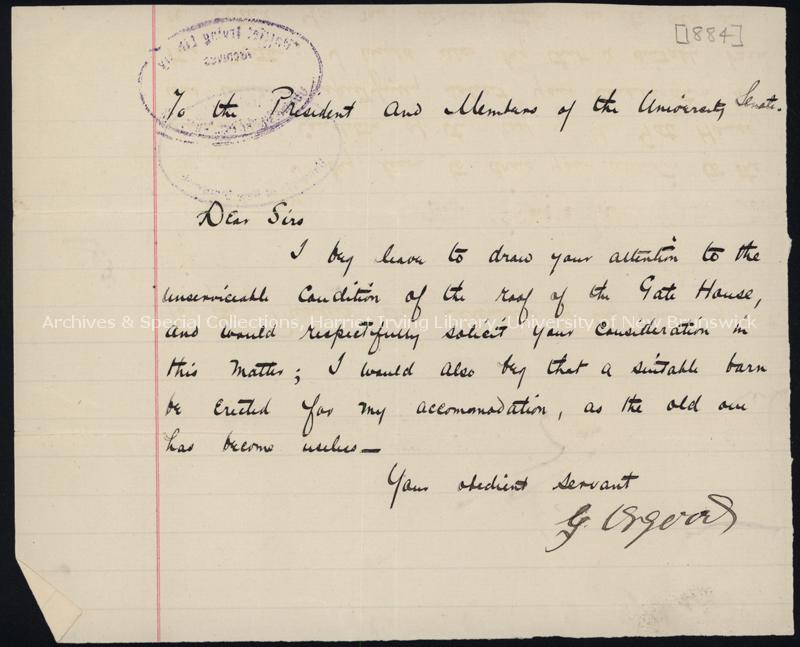 [1884]
To the President and Members of the University Senate.
Dear Sirs
I beg leave to draw your attention to the
unserviceable condition of the roof of the Gate House,
and would respectfully solicit your consideration in
this matter; I would also beg that a suitable barn
be erected for my accomodation, as the old one
has become useless—
Your obedient servant
G.
Archives & Special Collections, Harriet Irving Library, University of New Brunswick